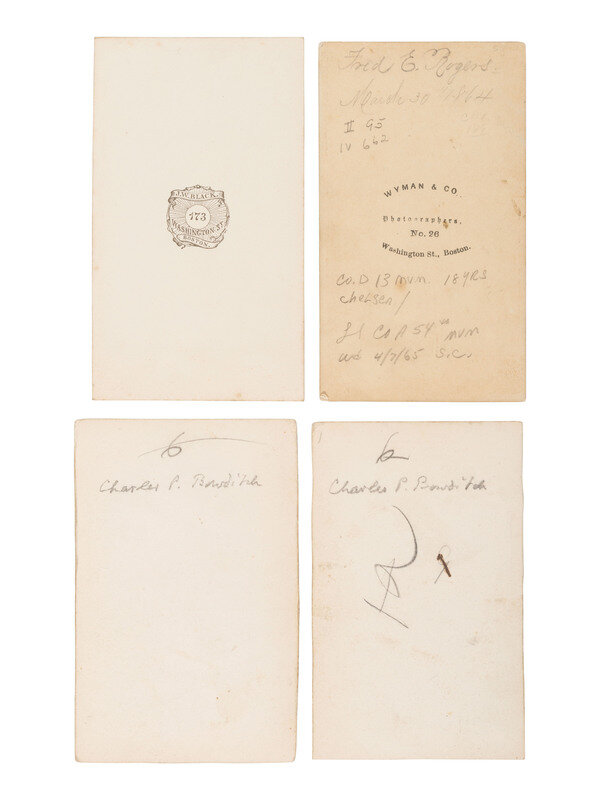 J.W. BLACK.
173
WASHINGTON ST.
BOSTON
Fred E. Rogers.
March 30th 1864
II 95
IV 662
WYMAN & CO.
Photographers,
No. 26
Washington St., Boston.
Co. D 13 MVM 18 YRS
Chelsea
Lt Co A 54 MVM
4/7/65 S.C.
6
Charles P. Bowditch
6
Charles P. Bowditch